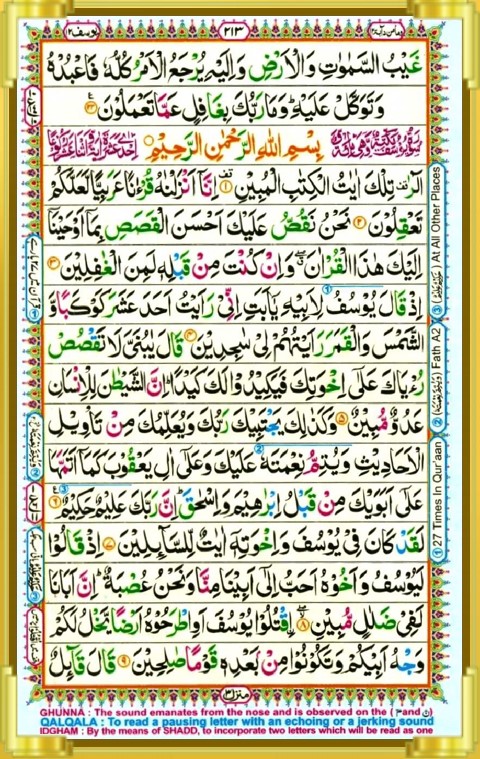 يوسف ١٢
٢١٣
وما من دآبة ١٢
غَيْبُ السَّمٰوٰتِ وَالْاَرْضِ وَاِلَيْهِ يُرْجَعُ الْاَمْرُ كُلُّهٗ فَاعْبُدْهُ
وَتَوَكَّلْ عَلَيْهِ ؕ وَمَا رَبُّكَ بِغَافِلٍ عَمَّا تَعْمَلُوْنَ ۟
بِسْمِ اللّٰهِ الرَّحْمٰنِ الرَّحِيْمِ
الٓرٰ ۫ تِلْكَ اٰيٰتُ الْكِتٰبِ الْمُبِيْنِ ۟ اِنَّاۤ اَنْزَلْنٰهُ قُرْءٰنًا عَرَبِيًّا لَّعَلَّكُمْ
تَعْقِلُوْنَ ۟ نَحْنُ نَقُصُّ عَلَيْكَ اَحْسَنَ الْقَصَصِ بِمَاۤ اَوْحَيْنَاۤ
اِلَيْكَ هٰذَا الْقُرْاٰنَ ۖ وَاِنْ كُنْتَ مِنْ قَبْلِهٖ لَمِنَ الْغٰفِلِيْنَ ۟
اِذْ قَالَ يُوْسُفُ لِاَبِيْهِ يٰۤاَبَتِ اِنِّيْ رَاَيْتُ اَحَدَ عَشَرَ كَوْكَبًا وَّ
الشَّمْسَ وَالْقَمَرَ رَاَيْتُهُمْ لِيْ سٰجِدِيْنَ ۟ قَالَ يٰبُنَيَّ لَا تَقْصُصْ
رُءْيَاكَ عَلٰۤى اِخْوَتِكَ فَيَكِيْدُوْا لَكَ كَيْدًا ؕ اِنَّ الشَّيْطٰنَ لِلْاِنْسَانِ
عَدُوٌّ مُّبِيْنٌ ۟ وَكَذٰلِكَ يَجْتَبِيْكَ رَبُّكَ وَيُعَلِّمُكَ مِنْ تَاْوِيْلِ
الْاَحَادِيْثِ وَيُتِمُّ نِعْمَتَهٗ عَلَيْكَ وَعَلٰۤى اٰلِ يَعْقُوْبَ كَمَاۤ اَتَمَّهَا
عَلٰۤى اَبَوَيْكَ مِنْ قَبْلُ اِبْرٰهِيْمَ وَاِسْحٰقَ ؕ اِنَّ رَبَّكَ عَلِيْمٌ حَكِيْمٌ ۟
لَقَدْ كَانَ فِيْ يُوْسُفَ وَاِخْوَتِهٖۤ اٰيٰتٌ لِّلسَّآئِلِيْنَ ۟ اِذْ قَالُوْا
لَيُوْسُفُ وَاَخُوْهُ اَحَبُّ اِلٰۤى اَبِيْنَا مِنَّا وَنَحْنُ عُصْبَةٌ ؕ اِنَّ اَبَانَا
لَفِيْ ضَلٰلٍ مُّبِيْنِ ۟ اقْتُلُوْا يُوْسُفَ اَوِ اطْرَحُوْهُ اَرْضًا يَّخْلُ لَكُمْ
وَجْهُ اَبِيْكُمْ وَتَكُوْنُوْا مِنْ بَعْدِهٖ قَوْمًا صٰلِحِيْنَ ۟ قَالَ قَآئِلٌ
منزل ٣
① 27 Times In Qur'aan
② Fath A2
③ At All Other Places
GHUNNA : The sound emanates from the nose and is observed on the (م and ن)
QALQALA : To read a pausing letter with an echoing or a jerking sound
IDGHAM : By the means of SHADD, to incorporate two letters which will be read as one